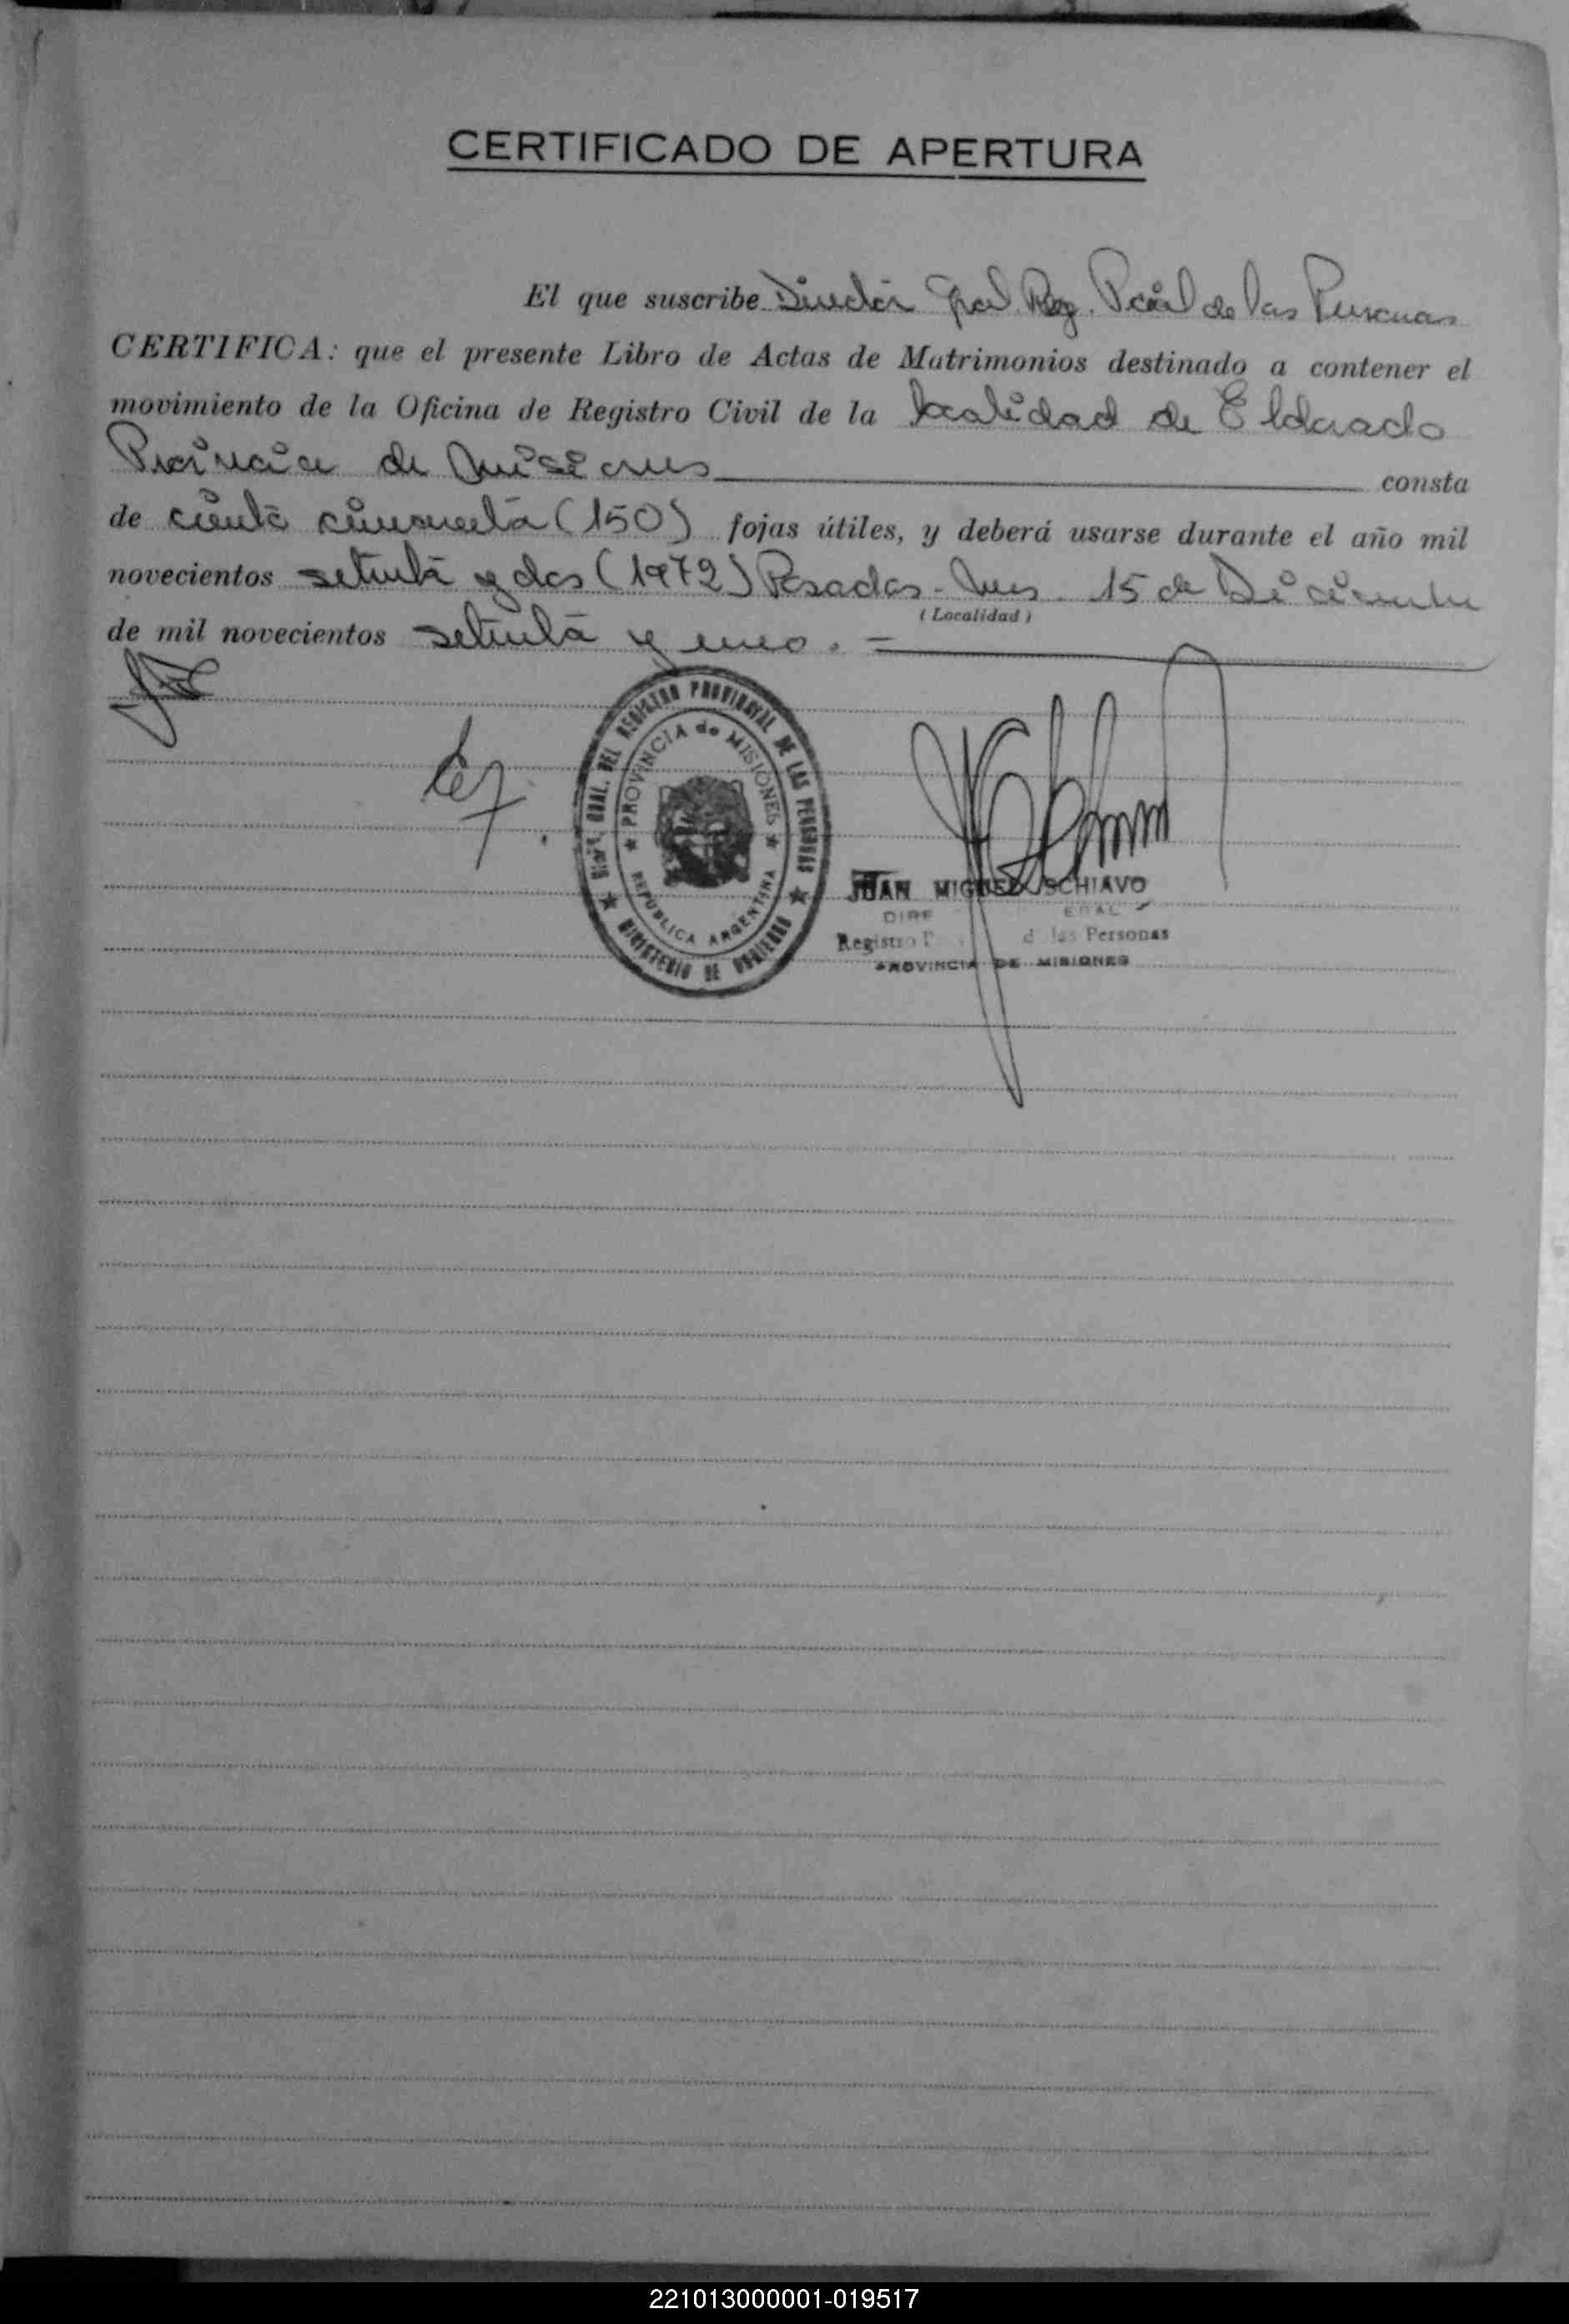 CERTIFICADO DE APERTURA
El que suscribe Director Gral. Reg. Pcial de las Personas
CERTIFICA: que el presente Libro de Actas de Matrimonios destinado a contener el
movimiento de la Oficina de Registro Civil de la localidad de Eldorado
Provincia de Misiones consta
de ciento cincuenta (150) fojas útiles, y deberá usarse durante el año mil
novecientos setenta y dos (1972) Posadas - Mnes. 15 de Diciembre
(Localidad)
de mil novecientos setenta y uno. -
DEL REGISTRO PROVINCIAL DE LAS PERSONAS
PROVINCIA de MISIONES
REPUBLICA ARGENTINA
MINISTERIO DE GOBIERNO
JUAN MIGUEL SCHIAVO
Registro d las Personas
PROVINCIA DE MISIONES
221013000001-019517